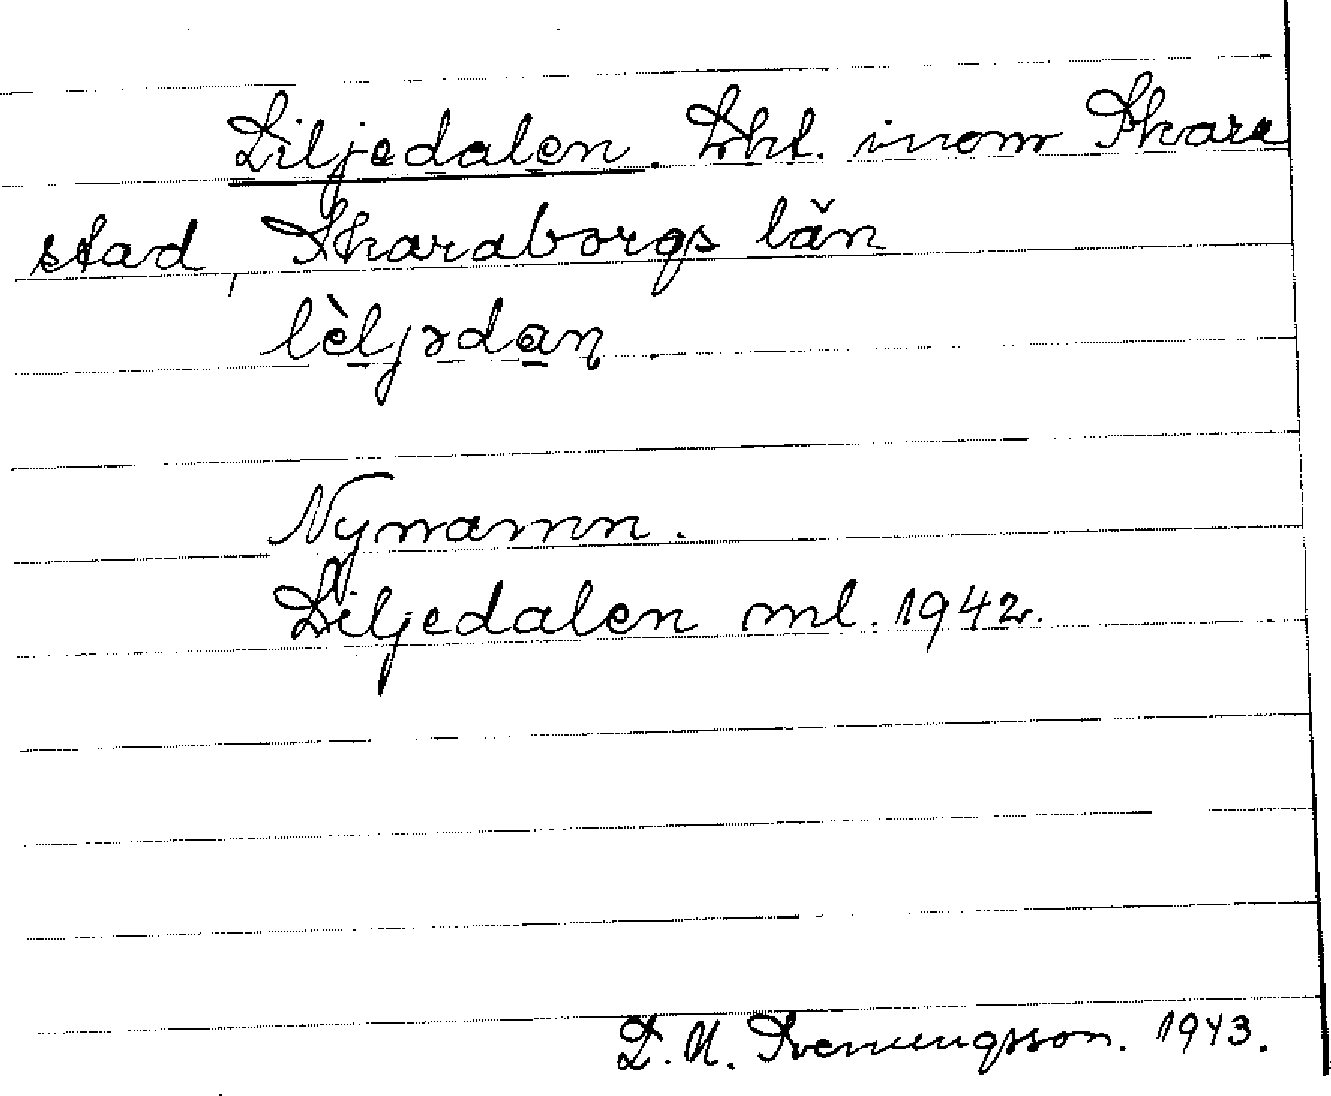 Liljedalen. Lht. inom Skara
stad, Skaraborgs län
lèljədaṉ
Nynamn.
Liljedalen ml. 1942.
D. U. Svenungsson. 1943.